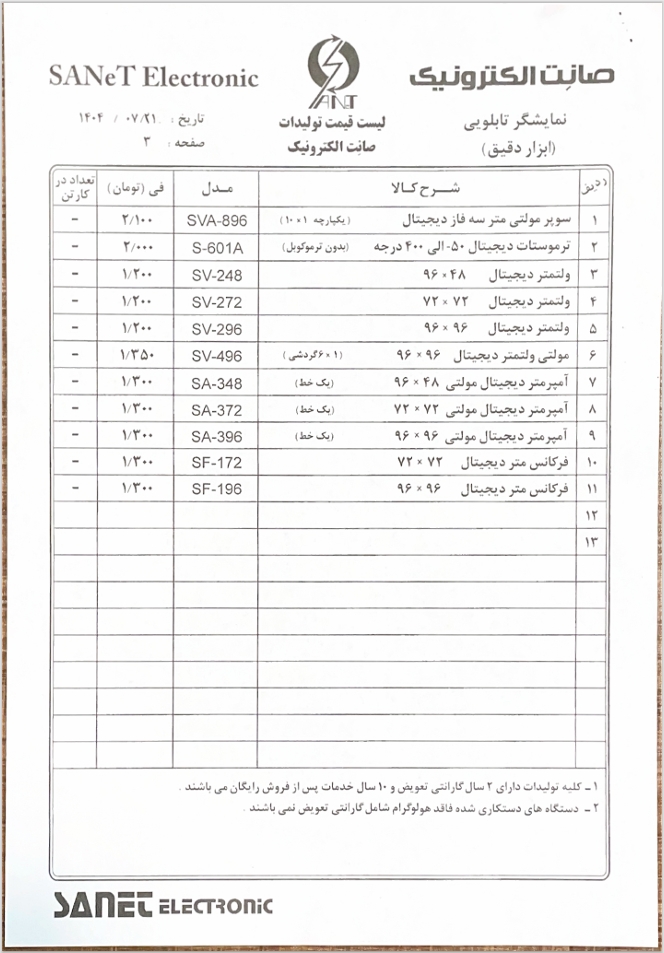 صانِت الکترونیک
SANeT Electronic
SANT
نمایشگر تابلویی
(ابزار دقیق)
لیست قیمت تولیدات
صانِت الکترونیک
تاریخ : ۱۴۰۴ / ۰۷/۲۱
صفحه : ۳
ردیف شــرح کـالا مـدل فی (تومان) تعداد در کارتن
۱ سوپر مولتی متر سه فاز دیجیتال (یکپارچه ۱ × ۱۰) SVA-896 ۲/۱۰۰ -
۲ ترموستات دیجیتال ۵۰- الی ۴۰۰ درجه (بدون ترموکوبل) S-601A ۲/۰۰۰ -
۳ ولتمتر دیجیتال ۴۸ × ۹۶ SV-248 ۱/۲۰۰ -
۴ ولتمتر دیجیتال ۷۲ × ۷۲ SV-272 ۱/۲۰۰ -
۵ ولتمتر دیجیتال ۹۶ × ۹۶ SV-296 ۱/۲۰۰ -
۶ مولتی ولتمتر دیجیتال ۹۶ × ۹۶ (۱ × ۶گردشی) SV-496 ۱/۳۵۰ -
۷ آمپرمتر دیجیتال مولتی ۴۸ × ۹۶ (یک خط) SA-348 ۱/۳۰۰ -
۸ آمپرمتر دیجیتال مولتی ۷۲ × ۷۲ (یک خط) SA-372 ۱/۳۰۰ -
۹ آمپرمتر دیجیتال مولتی ۹۶ × ۹۶ (یک خط) SA-396 ۱/۳۰۰ -
۱۰ فرکانس متر دیجیتال ۷۲ × ۷۲ SF-172 ۱/۳۰۰ -
۱۱ فرکانس متر دیجیتال ۹۶ × ۹۶ SF-196 ۱/۳۰۰ -
۱۲
۱۳
۱ - کلیه تولیدات دارای ۲ سال گارانتی تعویض و ۱۰ سال خدمات پس از فروش رایگان می باشند .
۲ - دستگاه های دستکاری شده فاقد هولوگرام شامل گارانتی تعویض نمی باشند .
SANET ELECTRONIC